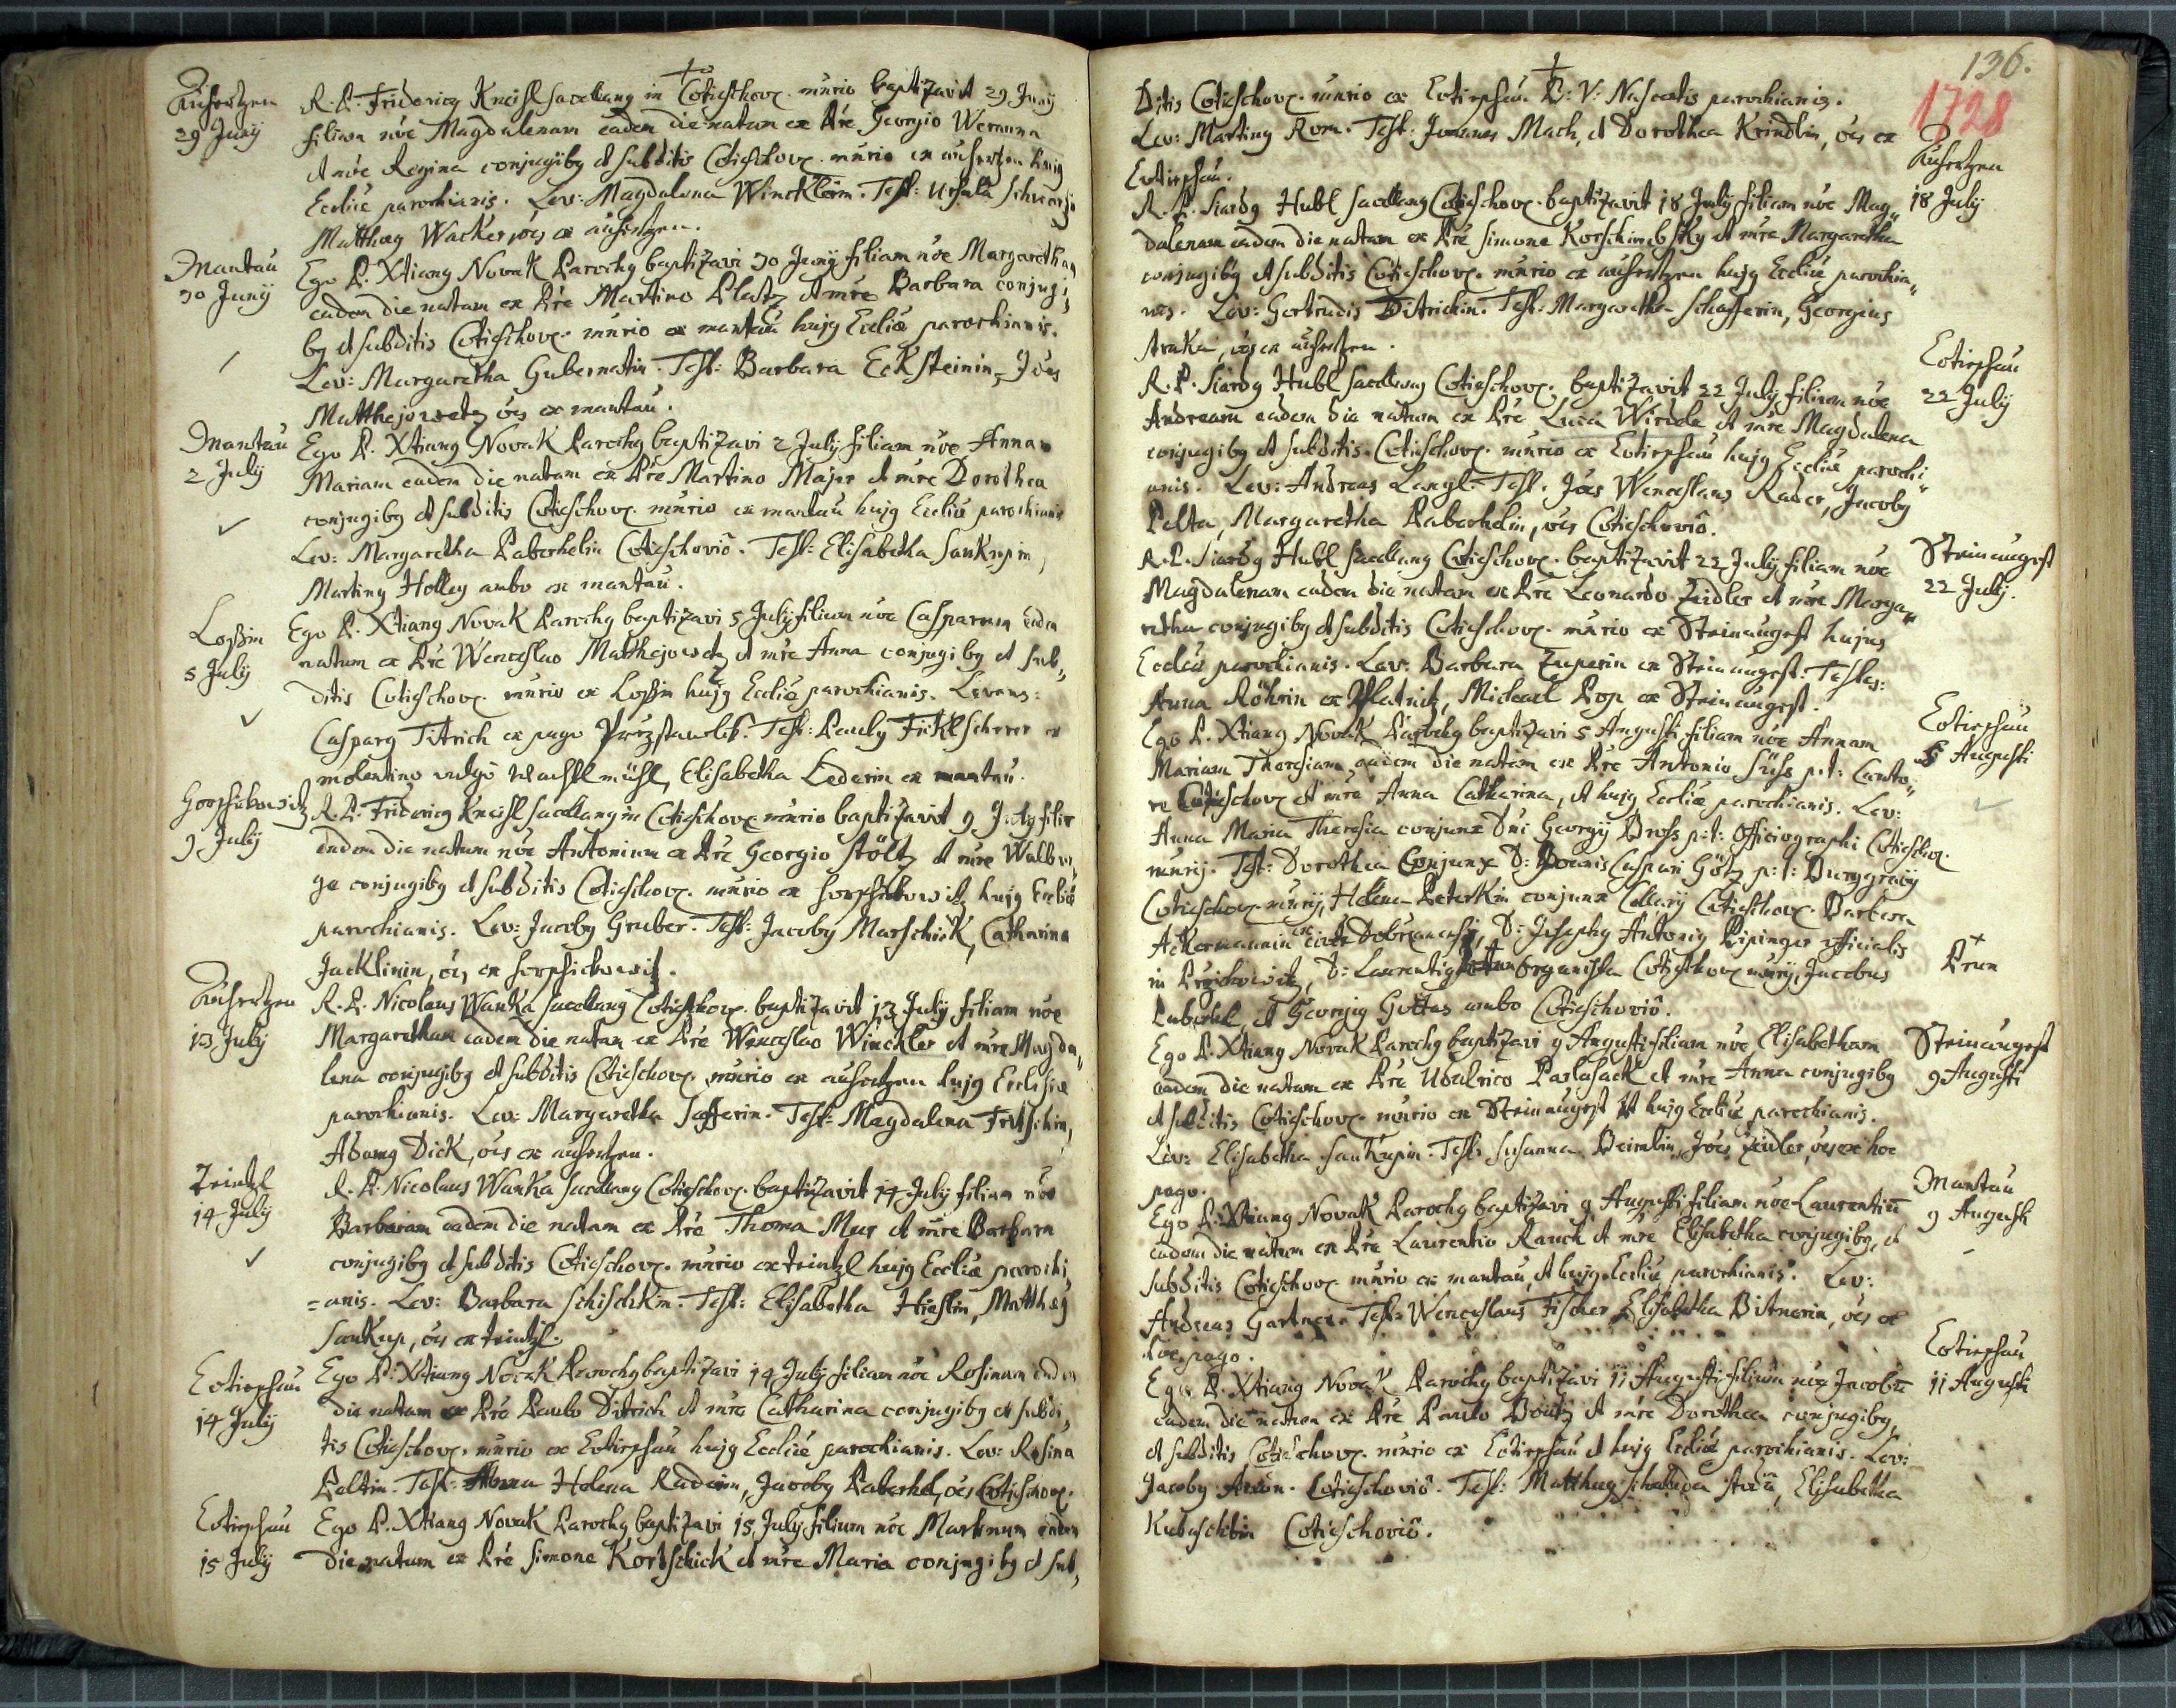 Auherzen
29 Junij
R. P. Fridericg Kneisl sacellang in Cotieschov. mûrio baptizavit 29 Junij
filiam nõe Magdalenam eadem die natam ex Pr̃e Georgio Weranna
et m̃re Regina conjugibg et subditis Cotieschov. mûrio ex auherzen hujg
Ecclĩæ parochianis. Lev: Magdalena Wincklerin. Test: Ursula
Matthæg Wacker, oẽs ex auherzen.
Mantau
30 Junij
Ego P. Xtiang Novak Parochg baptizavi 30 Junij filiam nõe Margaretham
eadem die natam ex Pr̃e Martino Platz et m̃re Barbara conjugi,,
bg et subditis Cotieschov. mûrio ex mantau hujg Ecclĩæ parochianis.
Lev: Margaretha Gubernatin. Test: Barbara Ecksteinin, Joẽs
Matthejowetz oẽs ex mantau.
Mantau
2 July
Ego P. Xtiang Novak Parochg baptizavi 2 July filiam nõe Annam
Mariam eadem die natam ex Pr̃e Martino Majer et m̃re Dorothea
conjugibg et subditis Cotieschov. mûrio ex mantau hujg Ecclĩæ parochianis
Lev: Margaretha Paberhelin Cotieschoviô. Test: Elisabetha Saukupin,
Marting Holley ambo ex mantau.
Lossin
5 July
Ego P. Xtiang Novak Parochg baptizavi 5 July filium nõe Casparum eadem
natum ex Pr̃e Wenceslao Matthejowetz et m̃re Anna conjugibg et sub,,
ditis Cotieschov. mûrio ex Lossin hujg Ecclĩæ parochianis. Levans:
Casparg Titrich ex pago Przestawlk. Test: Paulg Fickl scherer ex
molentino vulgò wachtl mühl, Elisabetha Lederin ex mantau.
Horssikowitz
9 July
R. P. Fridericg Kneisl sacellang in Cotieschov. mûrio baptizavit 9 July filiũ
eadem die natum nõe Antonium ex Pr̃e Georgio Stöltz et m̃re Walbur,,
ga conjugibg et subditis Cotieschov. mûrio ex horssikowitz hujg Ecclĩæ
parochianis. Lev: Jacobg Gruber. Test: Jacobg Marschick, Catharina
Jacklinin, oẽs ex horssikowitz.
Auherzen
13 July
R. P. Nicolaus Wanka sacellang Cotieschov. baptizavit 13 July filiam nõe
Margaretham eadem die natam ex Pr̃e Wenceslao Winckler et m̃re Magda,,
lena conjugibg et subditis Cotieschov. mûrio ex auherzen hujg Ecclesiæ
parochianis. Lev: Margaretha Safferin. Test: Magdalena Fritschin,
Adamg Dick, oẽs ex auherzen.
Teintzl
14 July
R. P. Nicolaus Wanka sacellang Cotieschov. baptizavit 14 July filiam nõe
Barbaram eadem die natam ex Pr̃e Thoma Mur et m̃re Barbara
conjugibg et subditis Cotieschov. mûrio ex teintzl hujg Ecclĩæ parochi
=anis. Lev: Barbara Schischkin. Test: Elisabetha Hieslin, Matthæg
Saukup, oẽs ex teintzl.
Cotiessau
14 July
Ego P. Xtiang Novak Parochg baptizavi 14 July filiam nõe Rosinam eadem
die natam ex Pr̃e Paulo Ditrich et m̃re Catharina conjugibg et subdi,,
tis Cotieschov. mûrio ex Cotiessau hujg Ecclĩæ parochianis. Lev: Rosina
Peltin. Test: Anna Helena Raderin, Jacobg Paberhel, oẽs Cotieschov.
Cotiessau
15 July
Ego P. Xtiang Novak Parochg baptizavi 15 July filium nõe Martinum eadem
die natum ex Pr̃e Simone Kortschick et m̃re Maria conjugibg et sub,,
136.
1728
ditis Cotieschov. mûrio ex Cotiessau B: V: Nascentis parochianis.
Lev: Marting Rom. Test: Joannes Mach, et Dorothea Kreindlin, oẽs ex
Cotiessau.
Auherzen
18 July
R. P. Siardg Hubl sacellang Cotieschov. baptizavit 18 July filiam nõe Mag,,
dalenam eadem die natam ex Pr̃e Simone Korschinebsky et m̃re Margaretha
conjugibg et subditis Cotieschov. mûrio ex auherzen hujg Ecclĩæ parochia,,
nis. Lev: Gertrudis Ditrichin. Test: Margaretha Schafferin, Georgius
Straka, oẽs ex auherzen.
Cotiessau
22 July
R. P. Siardg Hubl sacellang Cotieschov. baptizavit 22 July filium nõe
Andream eadem die natum ex Pr̃e Luca Wirdl et m̃re Magdalena
conjugibg et subditis Cotieschov. mûrio ex Cotiessau hujg Ecclĩæ parochi,,
anis. Lev: Andreas Langl. Test. Joẽs Wenceslaus Rader, Jacobg
Pelta, Margaretha Paberhelin, oẽs Cotieschoviô.
Steinaugest
22 July.
R. P. Siardg Hubl sacellang Cotieschov. baptizavit 22 July filiam nõe
Magdalenam eadem die natam ex Pr̃e Leonardo Zeidler et m̃re Marga,,
retha conjugibg et subditis Cotieschov. mûrio ex Steinaugest hujus
Ecclĩæ parochianis. Lev: Barbara Zuperin ex Steinaugest. Testes:
Anna Röhrin ex Platnitz, Michael Pop ex Steinaugest.
Cotiessau
5 Augusti
Ego P. Xtiang Novak Parochg baptizavi 5 Augusti filiam nõe Annam
Mariam Theresiam eadem die natam ex Pr̃e Antonio Süss p:t: Canto,,
re Cotieschov. et m̃re Anna Catharina, et hujg Ecclĩæ parochianis. Lev:
Anna Maria Theresia conjunx Dni Georgij Bross p:t: officiographi Cotieschov.
mûrij. Test: Dorothea Conjunx D: Joannis Caspari Götz p:t: Burggravij
Cotieschov. mûrij, Helena Peterkin conjunx Cellarij Cotieschov. Barbara
Ackermannin ex civit Dobrzanensi, D: Josephg Antonig Pipinger officialis
in Przichowitz, D: Laurentig organista Cotieschov. mûrij, Jacobus
Paberhel, et Georgig Guttas ambo Cotieschoviô.
Steinaugest
9 Augusti
Ego P. Xtiang Novak Parochg baptizavi 9 Augusti filiam nõe Elisabetham
eadem die natam ex Pr̃e Udalrico Paslasack et m̃re Anna conjugibg
et subditis Cotieschov. mûrio ex Steinaugest et hujg Ecclĩæ parochianis.
Lev: Elisabetha Saukupin. Test: Susanna Beimlin, Joẽs Zeidler, oẽs ex hoc
pago.
Mantau
9 Augusti
Ego P. Xtiang Novak Parochg baptizavi 9 Augusti filium nõe Laurentiũ
eadem die natum ex Pr̃e Laurentio Rauch et m̃re Elisabetha conjugibg, et
subditis Cotieschov. mûrio ex mantau, et hujg Ecclĩæ parochianis. Lev:
Andreas Gartner. Test: Wenceslaus Fischer Elisabetha Bitnerin, oẽs ex
hoc pago.
Cotiessau
11 Augusti
Ego P. Xtiang Novak Parochg baptizavi 11 Augusti filium nõe Jacobũ
eadem die natum ex Pr̃e Paulo Boutz et m̃re Dorothea conjugibg,
et subditis Cotieschov. mûrio ex Cotiessau et hujg Ecclĩæ parochianis. Lev:
Jacobg Cotieschoviô. Test: Matthæg Elisabetha
Kubaschtin Cotieschoviô.